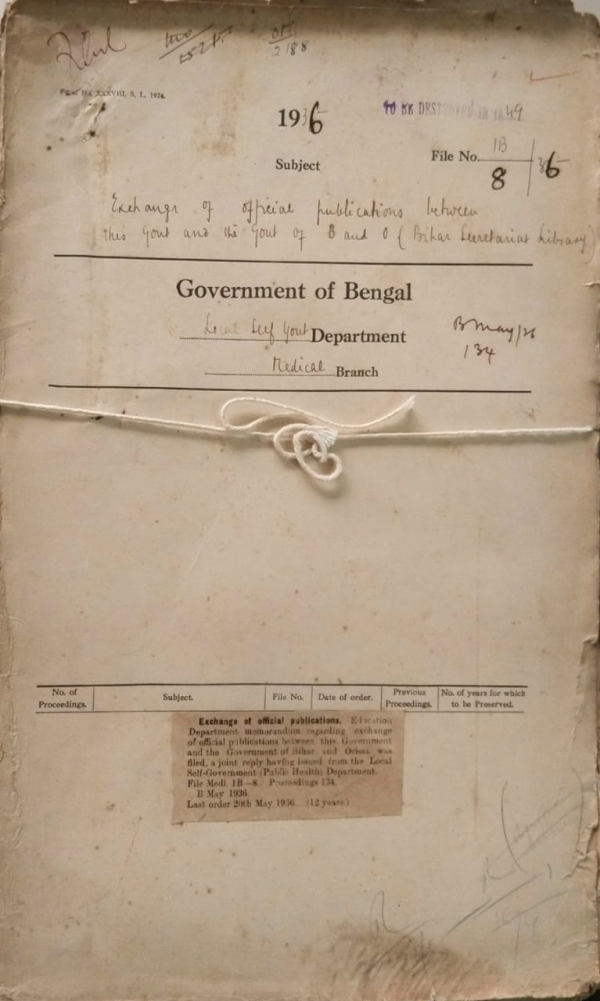 1936
TO BE DESTROYED IN 1949
Subject
File No. 1B
8 36
Exchange of official publications between
this Govt and the Govt of B and O (Bihar Secretariat Library)
Government of Bengal
Local Self Govt Department
B May/36
134
Medical Branch
No. of Proceedings. Subject. File No. Date of order. Previous Proceedings. No. of years for which to be Preserved.
Exchange of official publications. Education
Department memorandum regarding exchange
of official publications between this Government
and the Government of Bihar and Orissa was
filed, a joint reply having issued from the Local
Self-Government (Public Health) Department.
File Medl. 1B—8. Proceedings 134.
B May 1936.
Last order 20th May 1936. (12 years.)